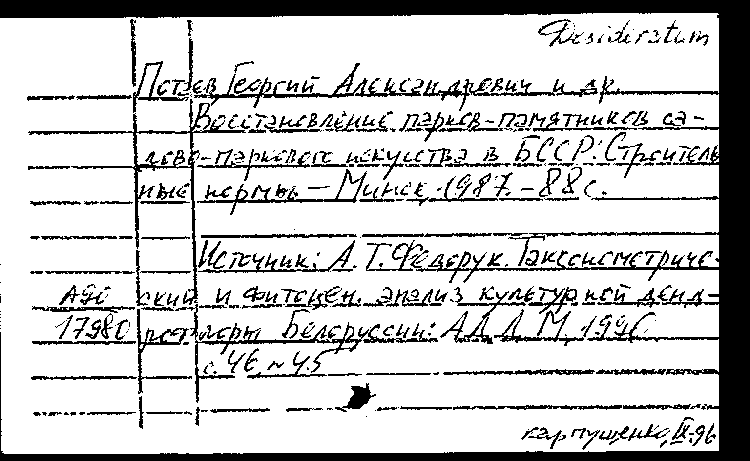 Desideratum
Потаев Георгий Александрович и др.
Восстановление парков-памятников са-
дово-паркового искусства в БССР: Строитель
ные нормы — Минск, 1987. – 88 с.
Источник: А. Т. Федорук. Таксонометриче-
А96 ский и фитоцен. анализ культурной денд-
17980 рофлоры Белоруссии: АДД М, 1996
с. 46, № 45
Карпущенко, IX-96